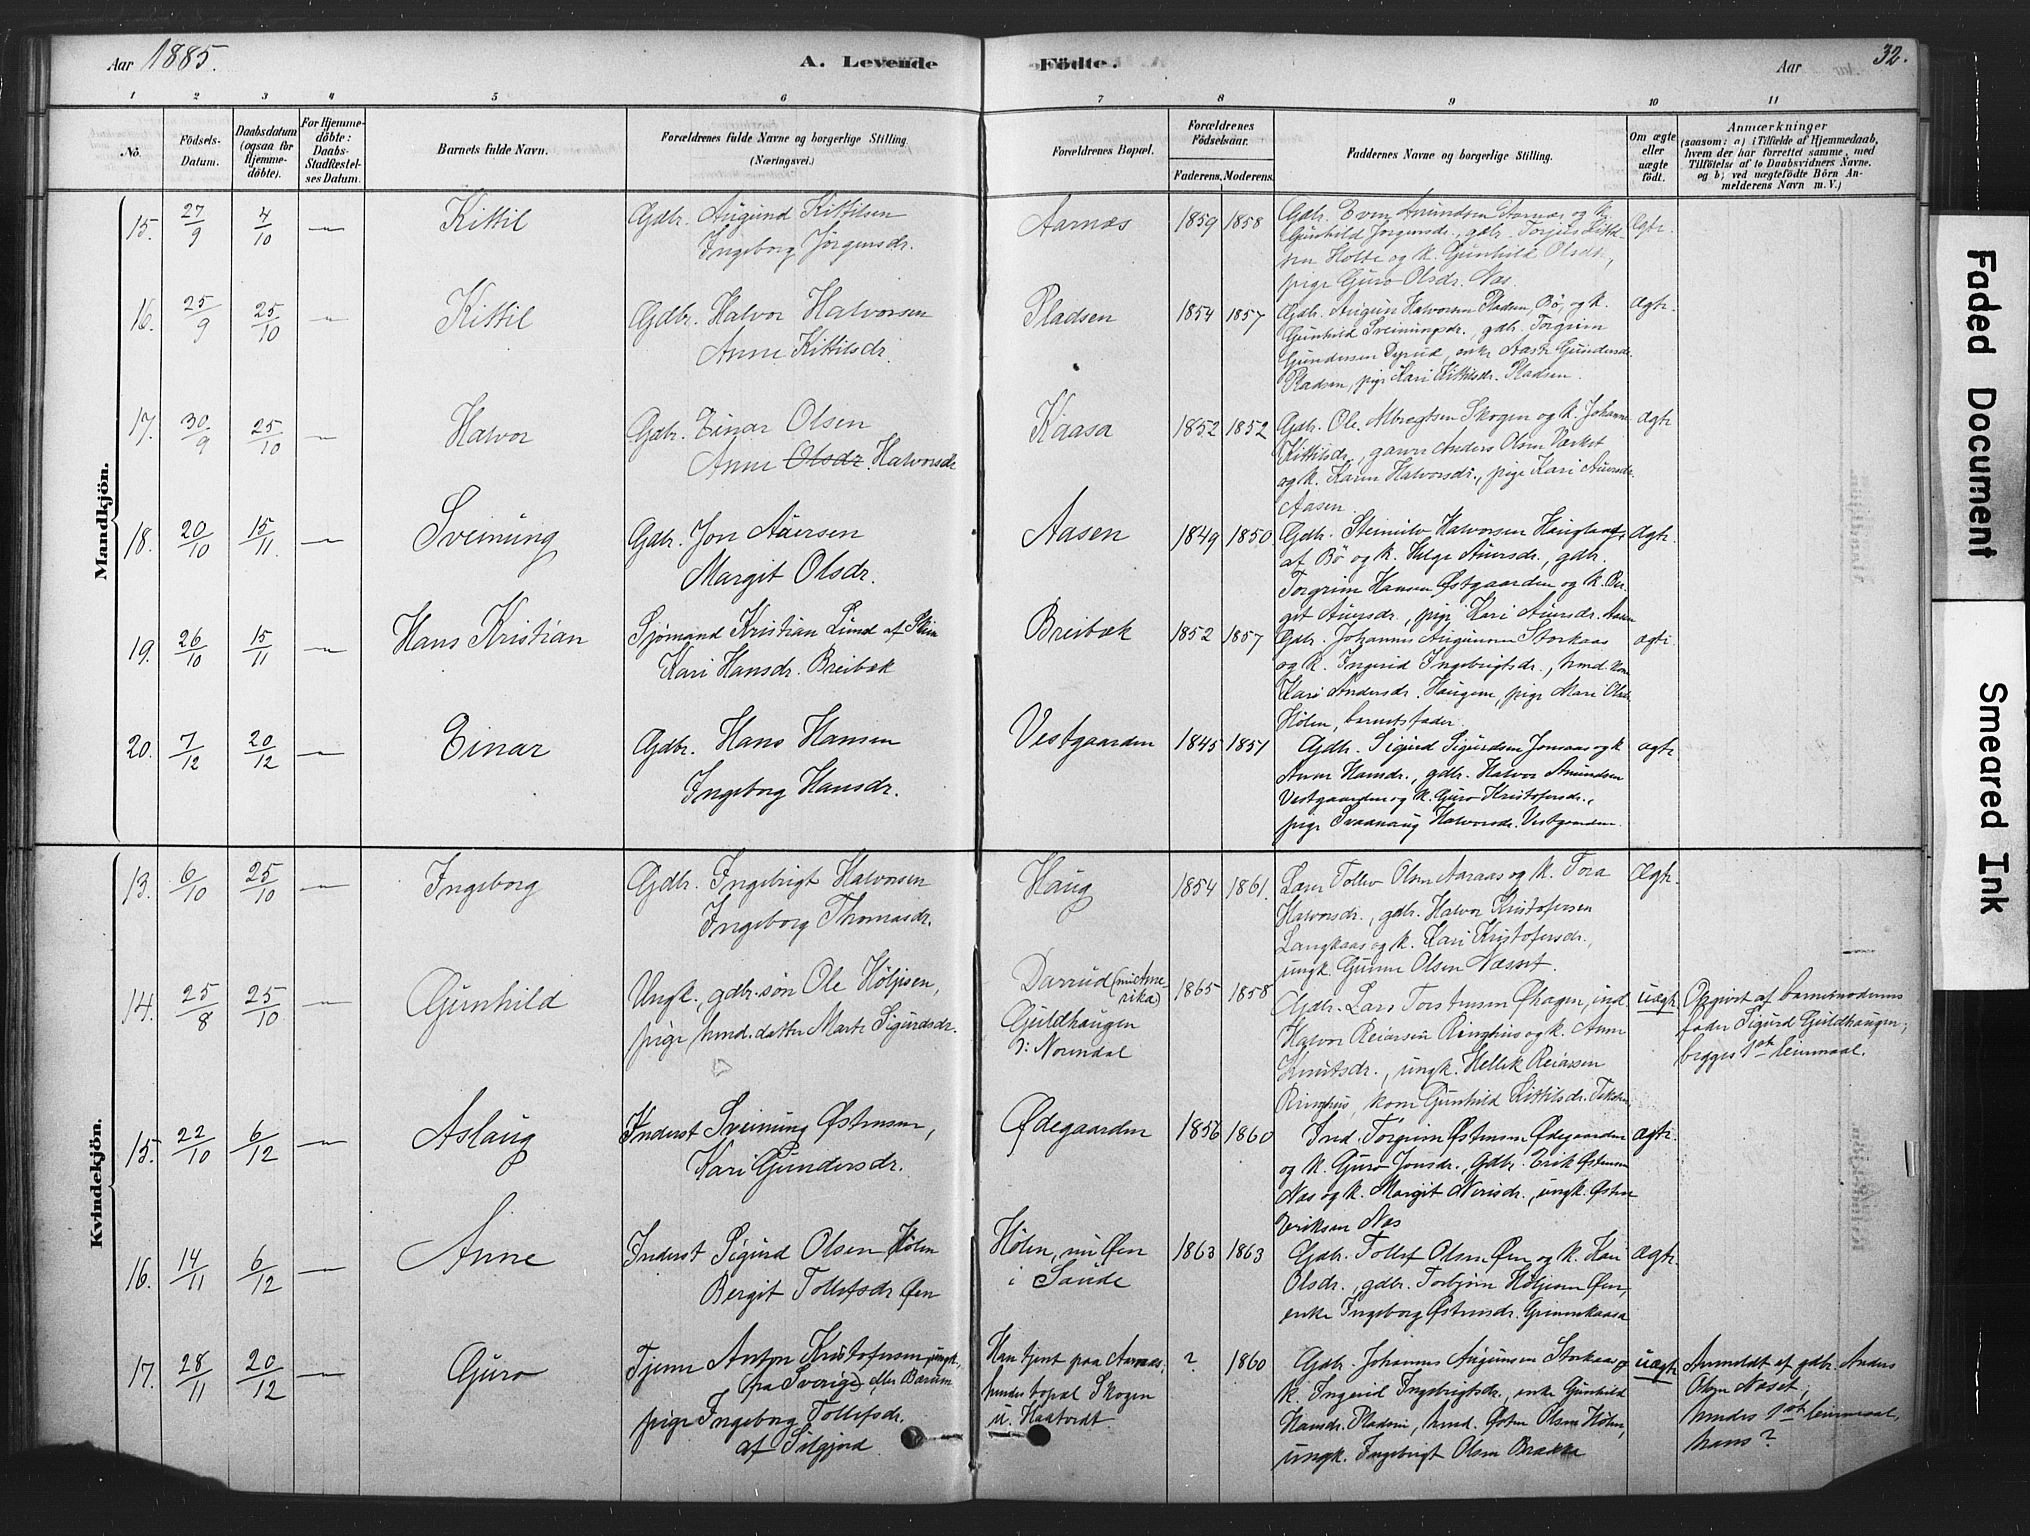 Aar 1885.
A. Levende Födte.
Aar
32.
1 2 3 4 5 6 7 8 9 10 11
No.
Födsels-Datum.
Daabsdatum (ogsaa for Hjemmedöbte).
For Hjemmedöbte: Daabs-Stadfæstelses Datum.
Barnets fulde Navn.
Forældrenes fulde Navne og borgerlige Stilling
(Næringsvei.)
Forældrenes Bopæl.
Forældrenes Födselsaar.
Faderens. Moderens.
Faddernes Navne og borgerlige Stilling.
Om ægte eller uægte födt.
Anmærkninger
(saasom: a) i Tilfælde af Hjemmedaab,
hvem der har forrettet samme, med
Tilföielse af to Daabsvidners Navne.
og b) ved uægtefödte Börn Anmelderens Navn m. V.)
Mandkjön.
15. 27/9 4/10 — Kittil
Gdbr. Augund Kittilsen
Ingeborg Jörgensdr.
Aarnæs 1859 1858
Gdbr. Even Amundsen Aarnæs og k.
Gunhild Jorgensdr., gdbr. Torjus Kittil-
sen Holte og k. Gunhild Olsdr.,
pige Guro Olsdr. Næs.
Ægte.
16. 25/9 25/10 — Kittil
Gdbr. Halvor Halvorsen
Anne Kittilsdr.
Pladsen 1854 1857
Gdbr. Augun Halvorsen Pladsen, Bø, og k.
Gunhild Sveinungsdr., gdb. Torgrim
Gundersen Dyrud, enke Aaste Gundersdr.
Pladsen, pige Kari Kittilsdr. Pladsen.
Ægte.
17. 30/9 25/10 — Halvor
Gdbr. Einar Olsen
Anne Olsdr. Halvorsdr.
Kaasa 1852 1852
Gdbr. Ole Albregtsen Skogen og k. Johanne
Kittilsdr., Anders Olsen Værket
og k. Karen Halvorsdr., pige Kari Auversdr.
Aasen.
Ægte
18. 20/10 15/11. — Sveinung
Gdbr. Jon Auersen
Margit Olsdr.
Aasen 1849 1850
Gdbr. Steinulv Halvorsen Haugland,
af Bø og k. Helge Auversdr., gdbr.
Torgrim Hansen Østgaarden og k. Ber-
git Auversdr., pige Kari Auversdr. Aasen
Ægte.
19. 26/10 15/11 — Hans Kristian
Sjömand Kristian Lund af Skien
Kari Hansdr. Breibæk
Breibæk 1852 1857
Gdbr. Johannes Augunsen Storkaas
og k. Ingerid Ingebrigtsdr., hmd. kone
Kari Andersdr. Haugen, pige Mari Olsdr.
Hølen, barnets fader.
ægte
20. 7/12 20/12 — Einar
Gdbr. Hans Hansen
Ingeborg Hansdr.
Vestgaarden 1845 1851
Gdbr. Sigurd Sigurdsen Jonsaas og k.
Anne Hansdr., gdbr. Halvor Amundsen
Vestgaarden og k. Guro Kristofersdr.,
pige Svaanaug Halvorsdr. Vestgaarden.
ægte
Kvindekjön.
13. 6/10 25/10 — Ingeborg
Gdbr. Ingebrigt Halvorsen
Ingeborg Thomasdr.
Haug 1854 1861.
Tollev Olsen Aaraas og k. Tora
Halvorsdr., gdbr. Halvor Kristofersen
Langkaas og k. Kari Kristofersdr.,
ungk. Gunne Olsen Næsset.
Ægte.
14. 25/8 25/10 — Gunhild
Ungk., gdbr.søn Ole Höljesen,
pige hmd. datter Marte Sigurdsdr.
Darrud (nu i Ame-
rika)
Guldhaugen
i Norndal
1865 1858
Gdbr. Lars Torstensen Øhagen, ind.
Halvor Reiarsen Ringhus og k. Anne
Knutsdr., ungk. Hellik Reiarsen
Ringhus, kone Gunhild Kittilsdr.
uægte
Opgivet af barnemoderens
fader Sigurd Guldhaugen;
begges 1ste leiermaal.
15. 22/10 6/12 — Aslaug
Inderst Sveinung Østensen,
Kari Gundersdr.
Ødegaarden 1856 1860
Ind. Torgrim Østensen Ødegaarden
og k. Guro Jonsdr., Gdbr. Erik Østensen
Næs og k. Margit Nirisdr., ungk. Østen
Eriksen Næs
ægte.
16. 14/11 6/12 — Anne
Inderst Sigurd Olsen Hölen
Bergit Tollefsdr. Øen
Hölen, nu Øen
i Saude
1863 1863
Gdbr. Tollef Olsen Øen og k. Kari
Olsdr., gdbr. Torbjörn Höljesen Øen,
enke Ingeborg Østensdr. Grimmkaasa
ægte.
17. 28/11 20/12 — Guro
Tjener Anton Kristofersen, ungk.,
fra Sverige eller Bærum
pige Ingeborg Tollefsdr.
af Silgjord
Han tjent paa Aarnæs,
hendes bopæl Skogen
u. Haatvedt
? 1860
Gdbr. Johannes Augunsen Storkaas og
k. Ingerid Ingebrigtsdr., enke Gunhild
Hansdr. Pladsen, hmd. Østen Olsen Hölen,
ungk. Ingebrigt Olsen Brække
uægte
Anmeldt af gdbr. Anders
Olsen Næset;
hendes 1ste leiermaal,
hans?
Faded Document
Smeared Ink